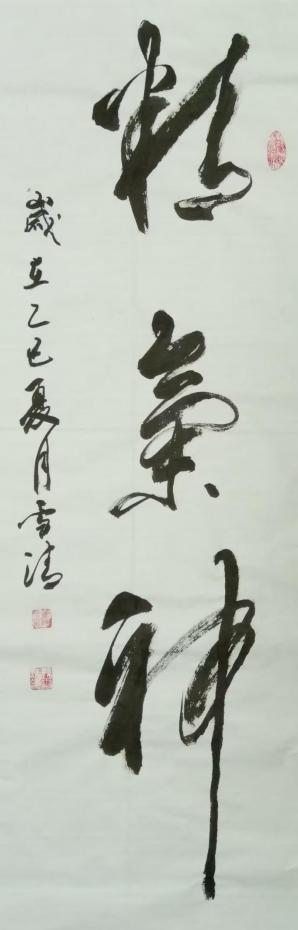 精氣神
歲在乙巳夏月雪清